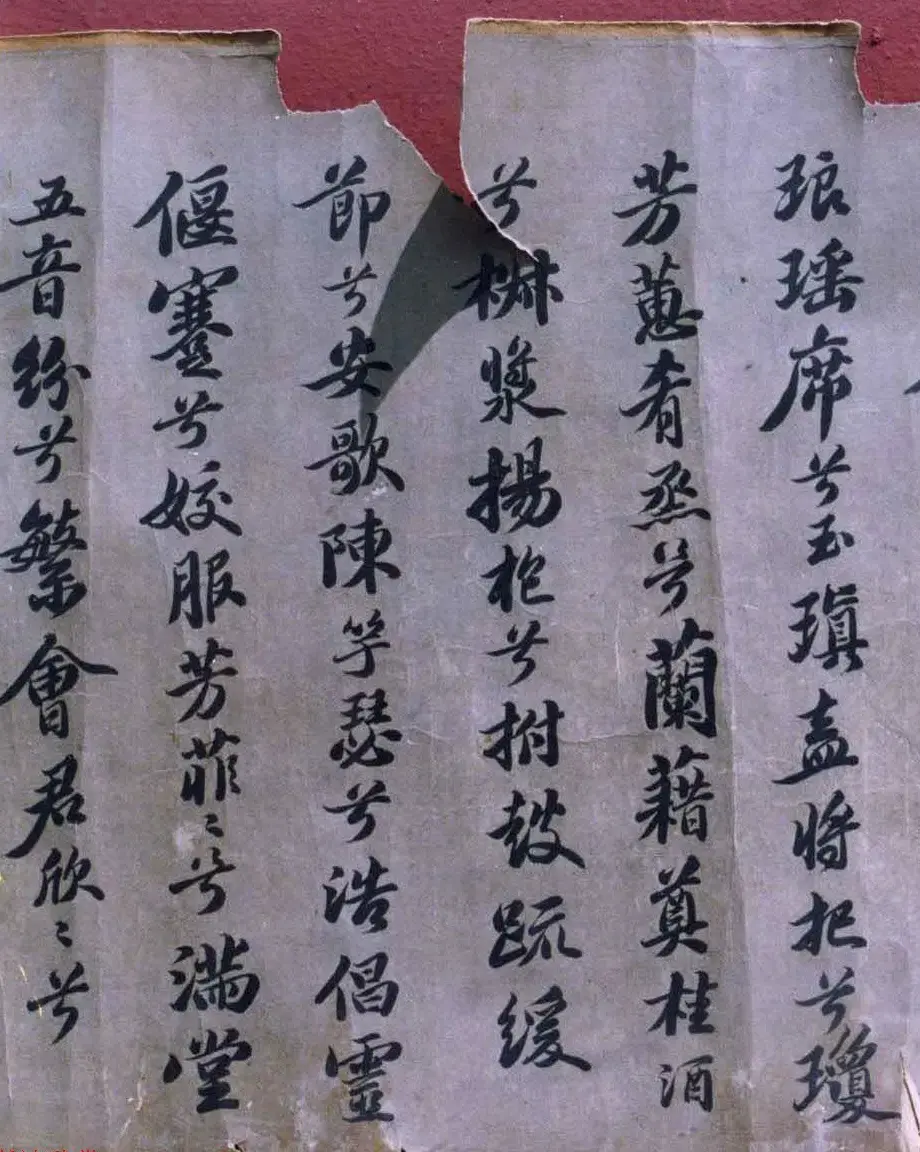 琅瑶席兮玉瑱盍將把兮瓊
芳蕙肴烝兮蘭藉奠桂酒
兮椒漿揚枹兮拊鼓疏緩
節兮安歌陳竽瑟兮浩倡靈
偃蹇兮姣服芳菲〻兮滿堂
五音紛兮繁會君欣〻兮